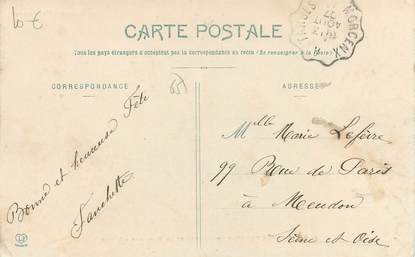 10 €
CARTE POSTALE
Tous les pays étrangers n'acceptent pas la correspondance au recto (Se renseigner à la Poste)
CORRESPONDANCE
ADRESSE
Bonne et heureuse Fête
Fanchette
Mlle Marie Lefèvre
99 Rue de Paris
à Meudon
Seine et Oise